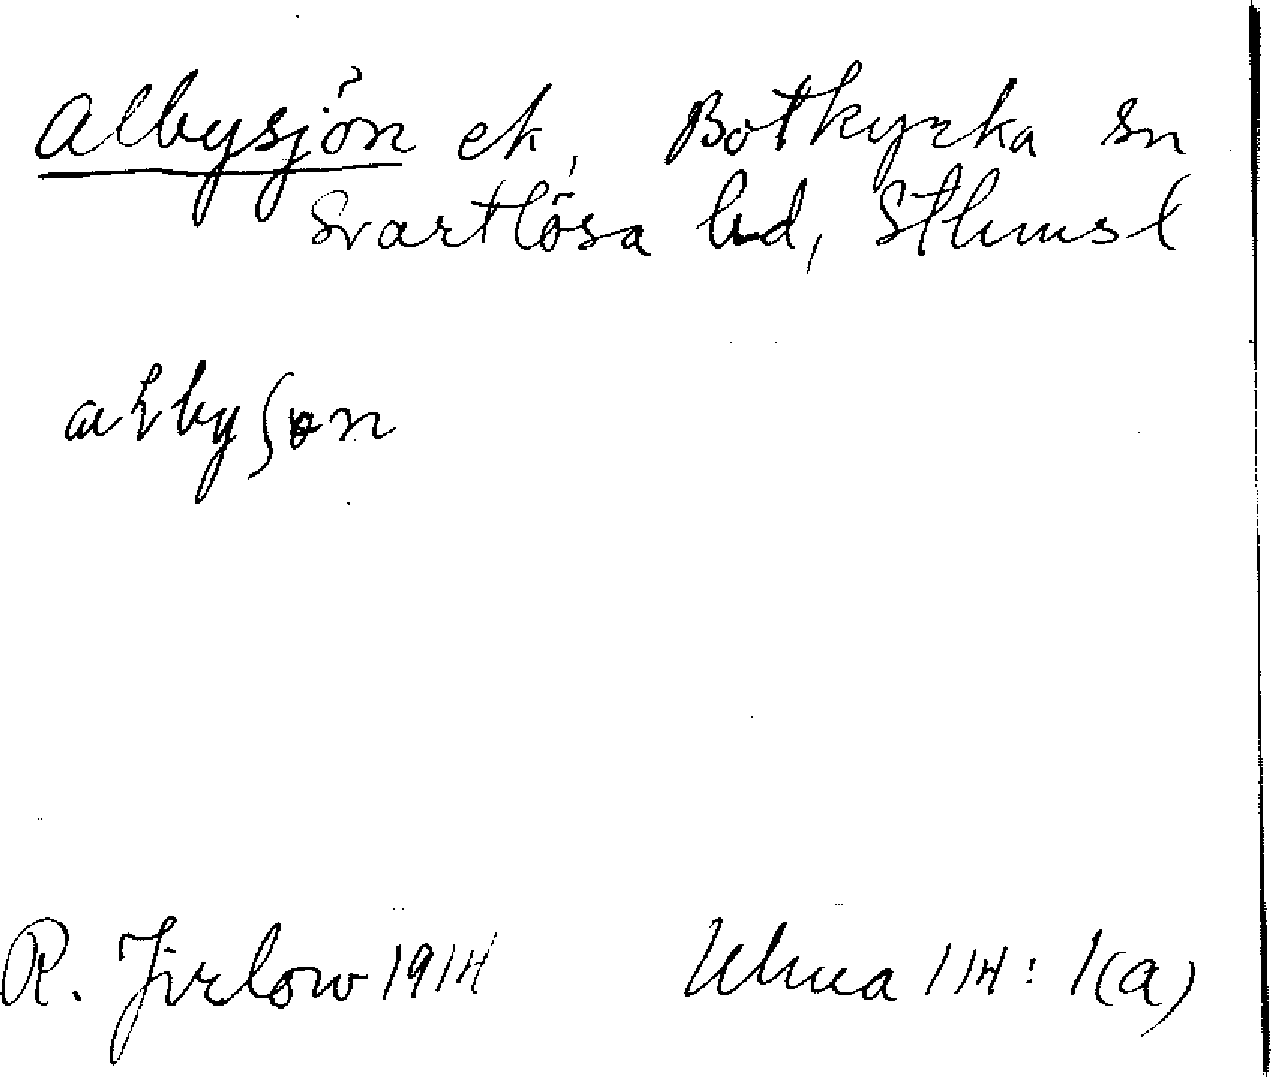 Albysjön ek, Botkyrka sn
Svartlösa hd, Sthmsl
R. Jirlow 1914 Ulma 114:1(a)